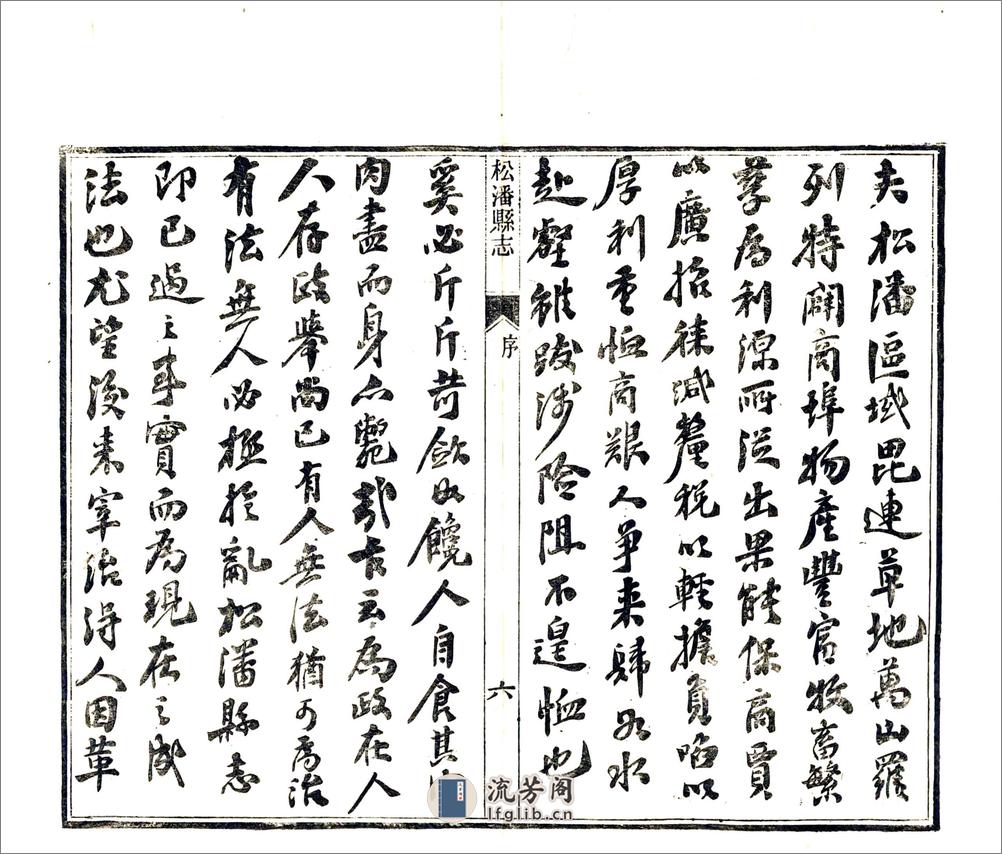 夫松潘區域毘連草地萬山羅
列特闢商埠物產豐富牧畜繁
孳為利源所從出果能保商賈
以廣招徠減釐稅以輕擔負啗以
厚利重恤商艱人爭来歸如水
赴壑雖跋涉險阻不遑恤也
松潘縣志
序
六
奚必斤斤苛歛如饞人自食其
肉盡而身亦斃哉古云為政在人
人存政舉尚已有人無法猶可為治
有法無人必極於亂松潘縣志
即已過之事實而為現在之成
法也尤望後来宰治得人因革
流芳阁
lfglib.cn